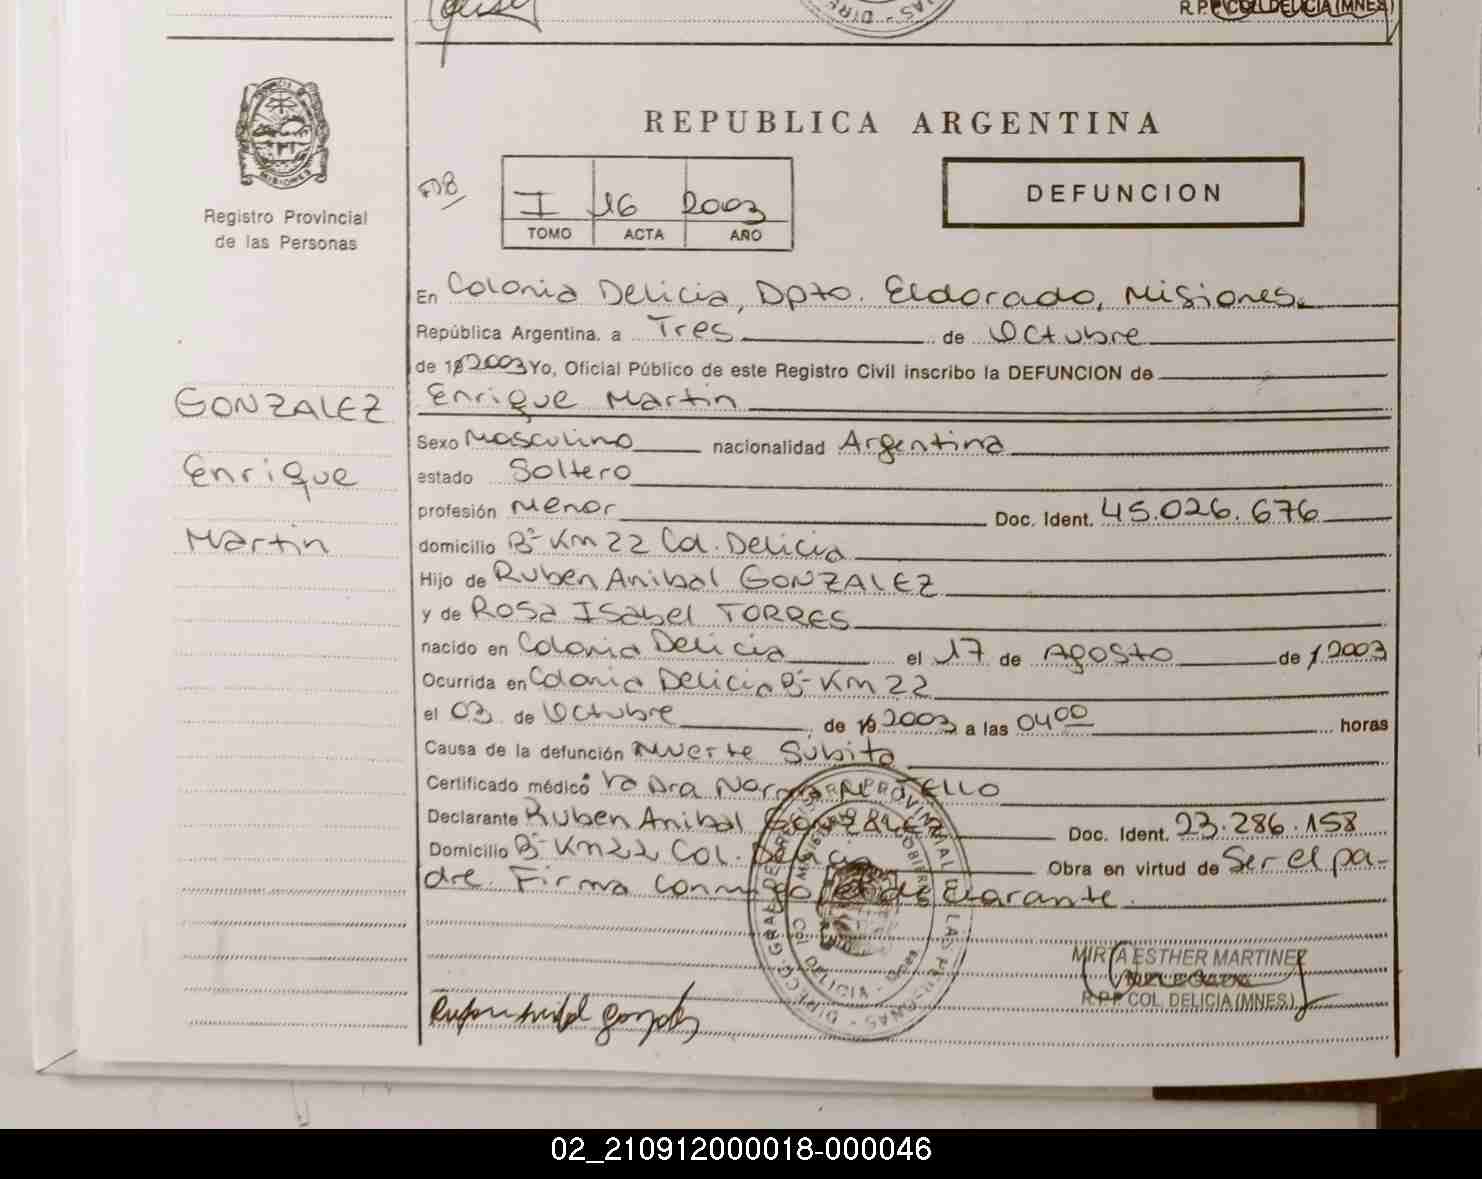 R.P.P. COL. DELICIA (MNES.)
PROVINCIA DE
MISIONES
Registro Provincial
de las Personas
REPUBLICA ARGENTINA
DEFUNCION
I 16 2003
TOMO ACTA AÑO
En Colonia Delicia, Dpto. Eldorado, Misiones.
República Argentina, a Tres de Octubre
de 19 2003 Yo, Oficial Público de este Registro Civil inscribo la DEFUNCION de
GONZALEZ
Enrique
Martin
Enrique Martin
Sexo Masculino nacionalidad Argentina
estado Soltero
profesión Menor Doc. Ident. 45.026.676
domicilio Bº Km 22 Col. Delicia
Hijo de Ruben Anibal GONZALEZ
y de Rosa Isabel TORRES
nacido en Colonia Delicia el 17 de Agosto de 1 2003
Ocurrida en Colonia Delicia Bº Km 22
el 03 de Octubre de 19 2003 a las 04 00 horas
Causa de la defunción Muerte Subita
Certificado médico Dra Norma TELLO
Declarante Ruben Anibal Gonzalez Doc. Ident. 23.286.158
Domicilio Bº Km 22 Col. Delicia Obra en virtud de Ser el pa-
dre. Firma conmigo el declarante.
MIRTA ESTHER MARTINEZ
DELEGADA
R.P.P. COL. DELICIA (MNES.)
Ruben Anibal Gonzalez
02_210912000018-000046